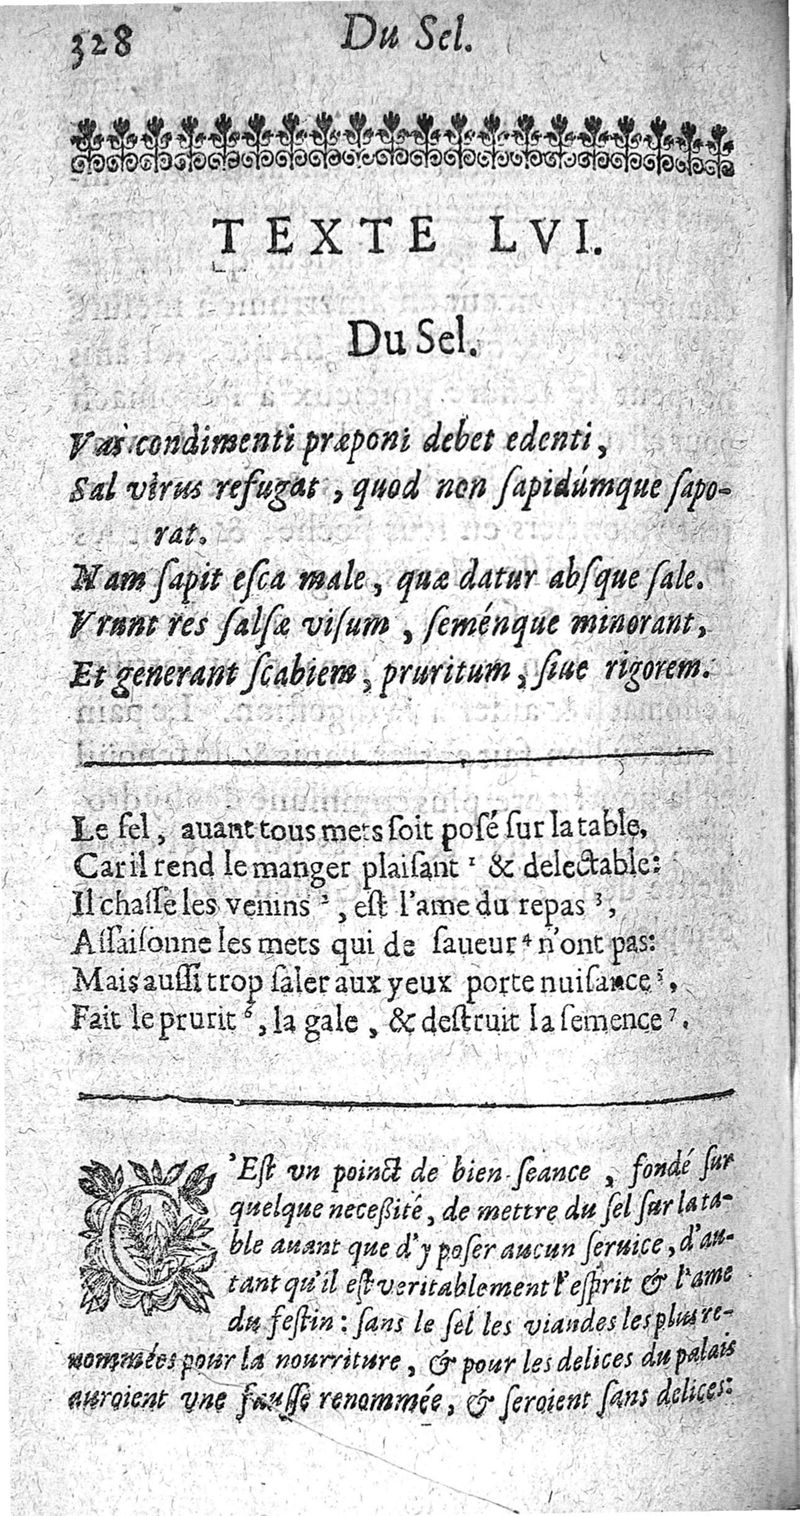 328 Du Sel.
TEXTE LVI.
Du Sel.
Vas condimenti præponi debet edenti,
Sal virus refugat, quod non ſapidúmque ſapo-
rat.
Nam ſapit eſca male, quæ datur abſque ſale.
Vrunt res ſalſæ viſum, ſeménque minorant,
Et generant ſcabiem, pruritum, ſiue rigorem.
Le ſel, auant tous mets ſoit poſé ſur la table,
Car il rend le manger plaiſant ¹ & delectable:
Il chaſſe les venins ², eſt l'ame du repas ³,
Aſſaiſonne les mets qui de ſaueur ⁴ n'ont pas:
Mais auſſi trop ſaler aux yeux porte nuiſance ⁵,
Fait le prurit ⁶, la gale, & deſtruit la ſemence ⁷.
C'Eſt vn poinct de bien ſeance, fondé ſur
quelque neceſſité, de mettre du ſel ſur la ta-
ble auant que d'y poſer aucun ſeruice, d'au-
tant qu'il eſt veritablement l'eſprit & l'ame
du feſtin: ſans le ſel les viandes les plus re-
nommées pour la nourriture, & pour les delices du palais
auroient vne fauſſe renommée, & ſeroient ſans delices: